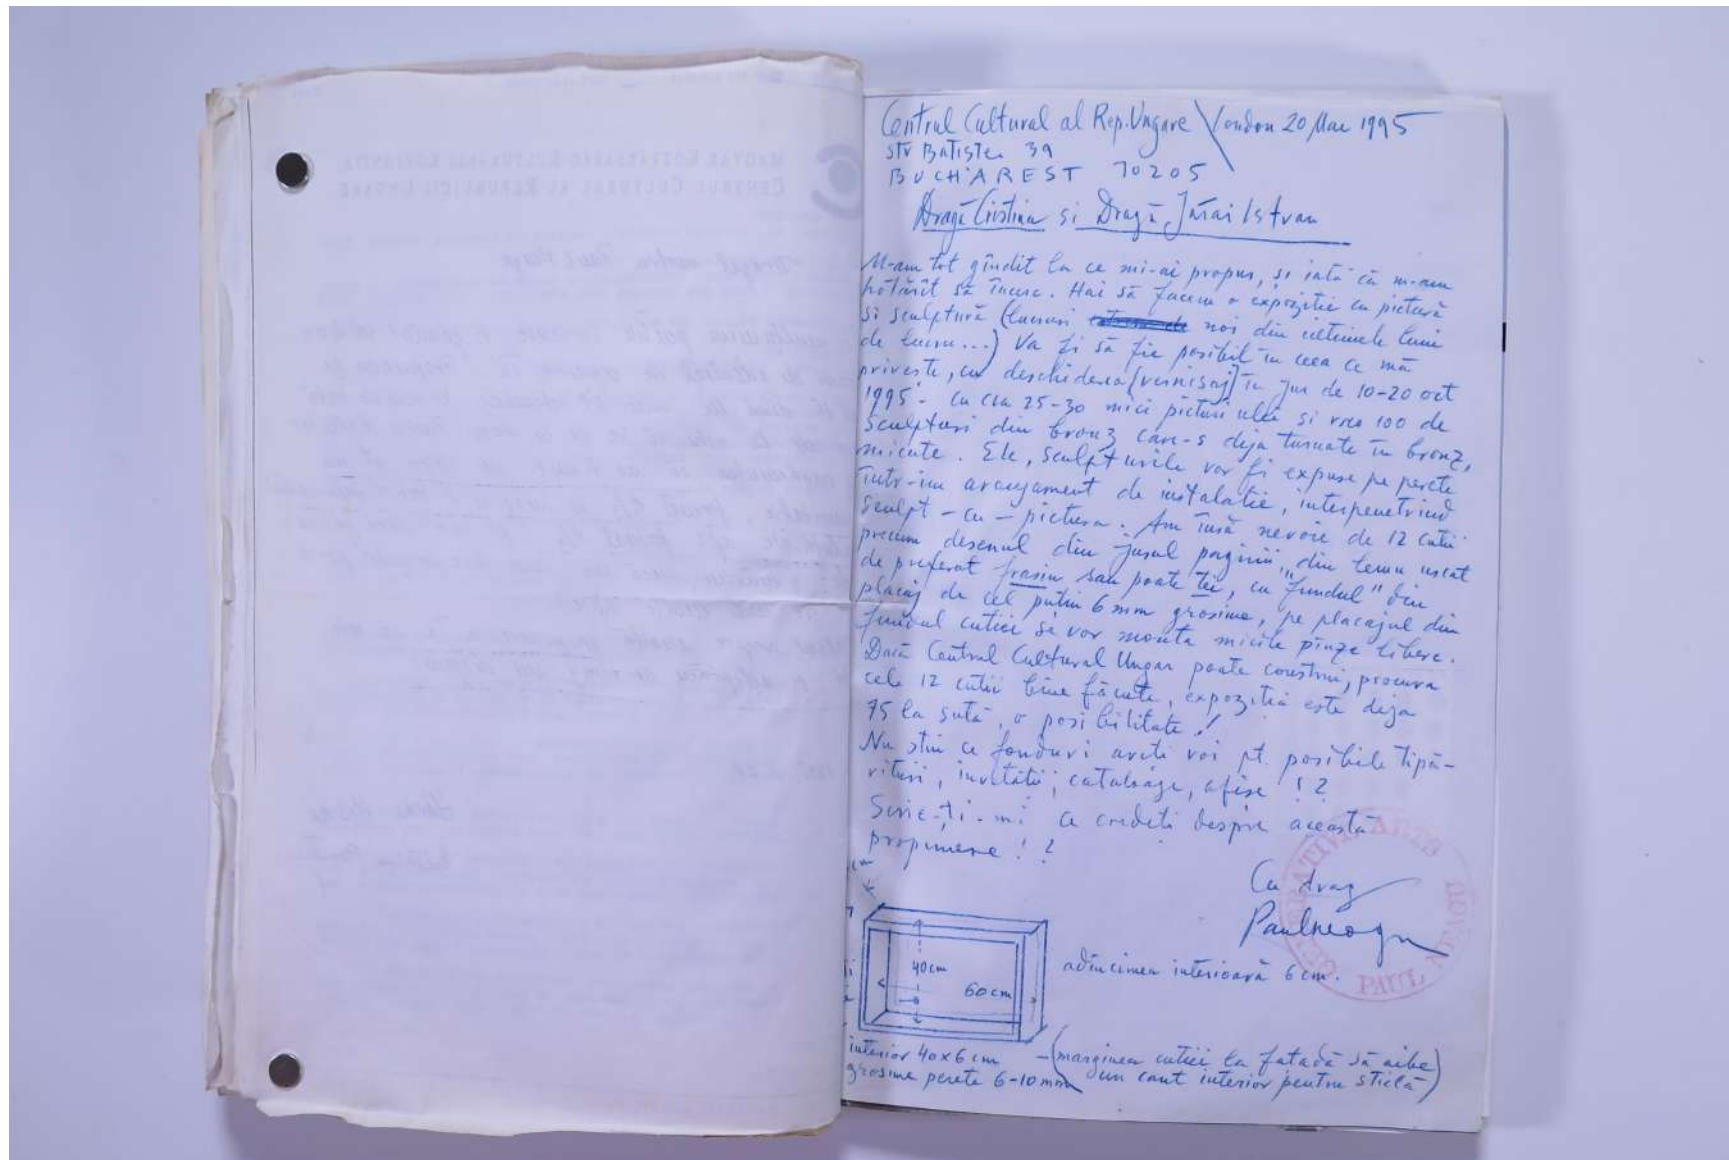 Centrul Cultural al Rep. Ungare \ London 20 Mai 1995
str Batiștei 39
BUCHAREST 70205
Dragă Cristina si Dragă Jutai Istvan
M-am tot gîndit la ce mi-ai propus, și iată că m-am
hotărît să încerc. Hai să facem o expoziție cu pictură
si sculptură (lucruri noi din ultimele luni
de lucru...) Va fi să fie posibil în ceea ce mă
priveste, cu deschiderea [vernisaj] în jur de 10-20 oct
1995 - cu cca 25-30 mici picturi ulei si vreo 100 de
sculpturi din bronz care-s deja turnate în bronz,
micute. Ele, sculpturile vor fi expuse pe perete
într-un aranjament de instalatie, interpenetrînd
sculpt - cu - pictura. Am însă nevoie de 12 cutii
precum desenul din josul paginii, din lemn uscat
de preferat frasin sau poate tei, cu "fundul" din
placaj de cel puțin 6 mm grosime, pe placajul din
fundul cutiei se vor monta micile pînze libere.
Dacă Centrul Cultural Ungar poate construi, procura
cele 12 cutii bine făcute, expoziția este deja
75 la sută, o posibilitate!
Nu stiu ce fonduri aveti voi pt. posibile tipă-
rituri, invitatii, cataloage, afise !?
Scrie-ți-mi ce credeți despre această
propunere !?
Cu drag
Paul Neagu
cm
40cm
60cm
adîncimea interioară 6 cm.
interior 40x6 cm - (marginea cutiei la fatadă să aibe
grosime perete 6-10mm un cant interior pentru sticlă)
GENERATIVE ARTS
PAUL NEAGU